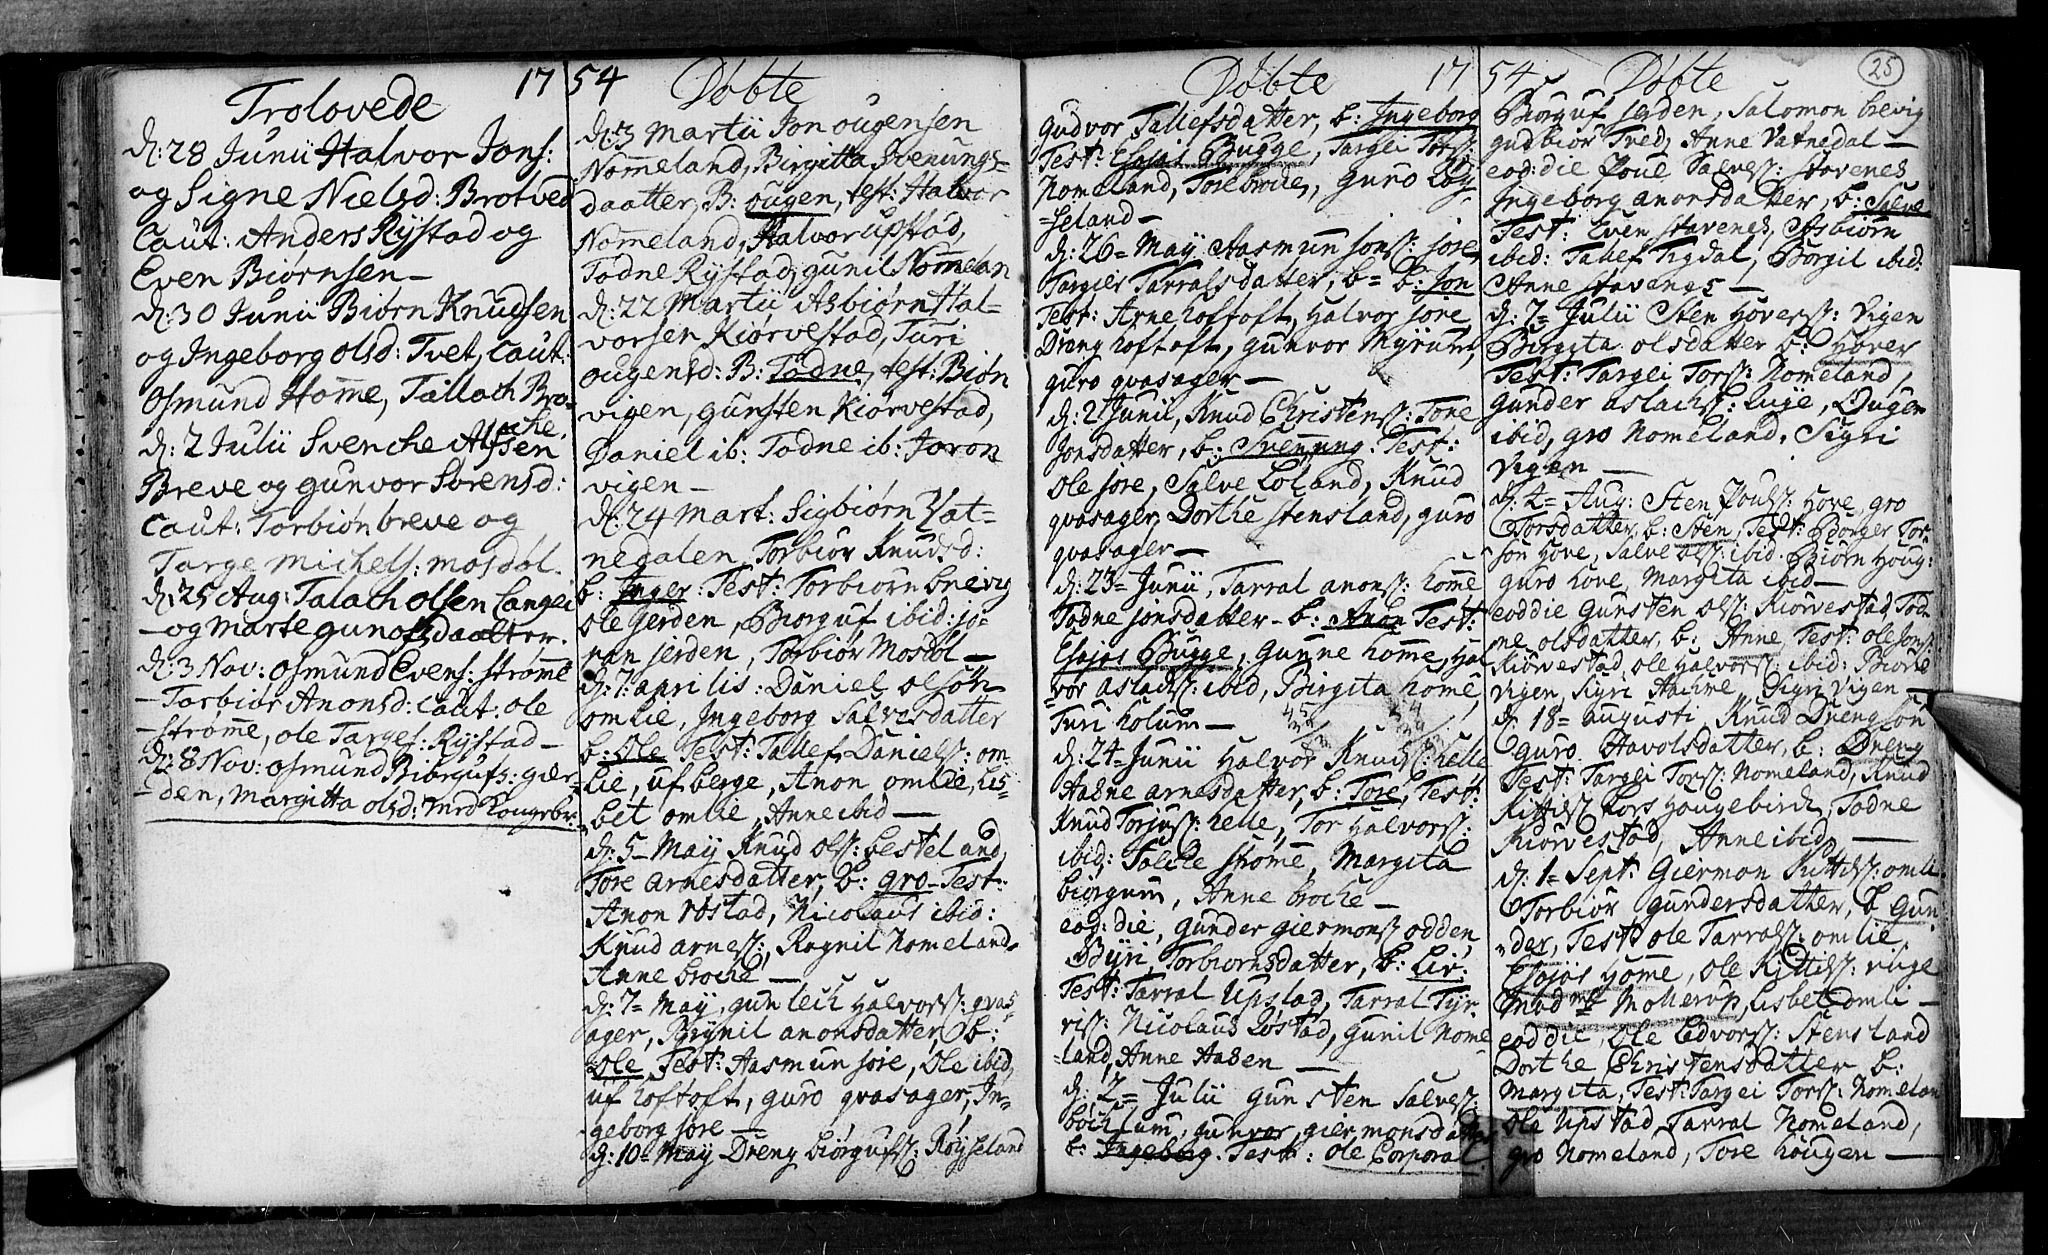 Trolovede 17
d: 28 Junii Halvor Jons:
og Signe Nielsd: Brotved
Caut: Anders Rystad og
Even Biørnsen —
d: 30 Junii Biørn Knudsen
og Ingeborg olsd: Tvet, caut:
Osmund Homme, Tallach Bro-
che.
d: 2 Julii Svenche Alfsen
Breve og gunvor Sorensd:
Caut: Torbiøn breve og
Targe michels: mosdøl.
d: 25 Aug: Talach olsen Langei
- og marte gunolfsdaatter.
d: 3 Nov: osmund Evens: strømme
- Torbiør Anonsd: caut: ole
strømme, ole Targes: Rystad —
d: 8 Nov: osmund Biorgufs: gier-
- den, Margitta olsd: med Kongebr:
54 Døbte
d: 3 Martii Jon ougensen
Nommeland, Birgitta Svenungs-
daatter, B: ougen, test: Halvor
Nommeland, Halvor upstad,
Todne Rystad, gunil Nommelan
d: 22 Martii Asbiørn Hal-
vorsen Kiorvestad, Turi
ougensd: B: Todne, test: Biøn
vigen, gunsten Kiørvestad,
Daniel ib: Todne ib: Joron
vigen —
d: 24 Mart: Sigbiørn Vat-
nedalen, Torbiør Knudsd:
b: Inger: Test: Torbiørn breivig
ole Jerden, Biorguf ibid: jo-
ran jerden, Torbiør Mosdøl —
d: 7: aprilis: Daniel olsøn
omlie, Ingeborg Salvesdatter
b: Ole Test: Tallef Daniels: om-
lie, uf berge, Anon omlie, Lis-
bet omlie, Anne ibid —
d: 5 May Knud ols: besteland,
Tore arnesdatter, b: gro - Test:
Anon røstad, Nicolaus ibid:
Knud arnes:, Rognil nomeland,
Anne broche —
d: 7 May, gunlech Halvors: qvas-
ager, Brynil anonsdatter, b:
Ole, Test: Aasmun jore, Ole ibid,
uf hoftoft, guro qvasager, In-
geborg jore —
d: 10 May Dreng biorgufs: Røyseland
Døbte 17
gudvor Tallefsdatter, b: Ingeborg
Test: Esaias Bugge, Targei Tors:
Nomeland, Tore broche, Guro Røy-
seland —
d: 26 May Aasmun jons: jore,
Targies Tarralsdatter, b: b: Jon
Test: Arne hoftoft, halvor jore
Dreng hoftoft, gunvor Myrum,
guro qvasager —
d: 2 Junii, Knud Christens: Tone
Jonsdatter, b: Svennung. Test:
Ole jore, Salve Loland, Knud
qvasager, Dorthe stensland, guro
qvasager —
d: 23 Junii, Tarral anons: homme
Todne jonsdatter - b: Anon Test:
Esajas Bugge, Gunne homme, Hal-
vor aslachs: ibid, Birgita home,
Turi holum —
d: 24 Junii Halvor Knuds: helle
Aasne arnesdatter, b: Tore, Test:
Knud Torjus: helle, Tor Halvors:
ibid: Talche strømme, Margita
biorgum, Anne broche —
eod: die, Gunder giermons: odden,
Gyri Torbiornsdatter, b: Liv:
Test: Tarral Upstad, Tarral Tyr-
ris: Nicolaus Løstad, gunil nome-
land, Anne Aaken —
d: 2 Julii Gunsten Salves:
bochum, gunvor giermonsdatter
b: Ingeborg. Test: ole Corporal
54 Døbte 25
Biorguf jerden, Salomon brevig
gudbiør Tved, Anne Vatnedal —
eod: die Poue Salves: stavenes
Ingeborg anonsdatter, b: Salve
Test: Even stavenes, Asbiørn
ibid: Tallef Tigdal, Borgil ibid:
Anne stavenes —
d: 7 Julii Sten Hovers: Vigen
Birgita olsdatter b: Hover
Test: Targei Tors: Nomeland,
Gunder aslachs: luge, Ougen
ibid, gro Nomeland, Sigri
Vigen —
d: 4 Aug: Sten Pouls: hove, gro
Torsdatter, b: Sten, Test: Borger Tor-
son hove, Salve ols: ibid. Biørn houg:
guro hove, Margita ibid —
eod die Gunsten ols: Kiorvestad, Tod-
ne olsdatter, b: Anne Test: ole Jons:
Kiorvestad, ole halvors: ibid: Biorne
vigen, Sigri Hachme, Sigri Vigen —
d: 18 augusti, Knud Drengsøn
guro Havolsdatter, b: Dreng
Test: Targei Tors: Nomeland, Knud
Kittils: Lars Haugebirch, Todne
Kiorvestad, Anne ibid —
d: 1 Sept: Giermon Kittils: omlie
Torbiør gundersdatter, b Gun-
der, Test ole Tarrals: omlie,
Esajas homme, Ole Kittils: ruge
Mad: mr Mollerup, Lisbet omli —
eod die, Ole Edvors: Stensland
Dorthe Christensdatter, b:
Margita, Test: Targei Tors: Nomelan
Ole Upstad, Tarral Nomeland,
gro Nomeland, Tore hougen —